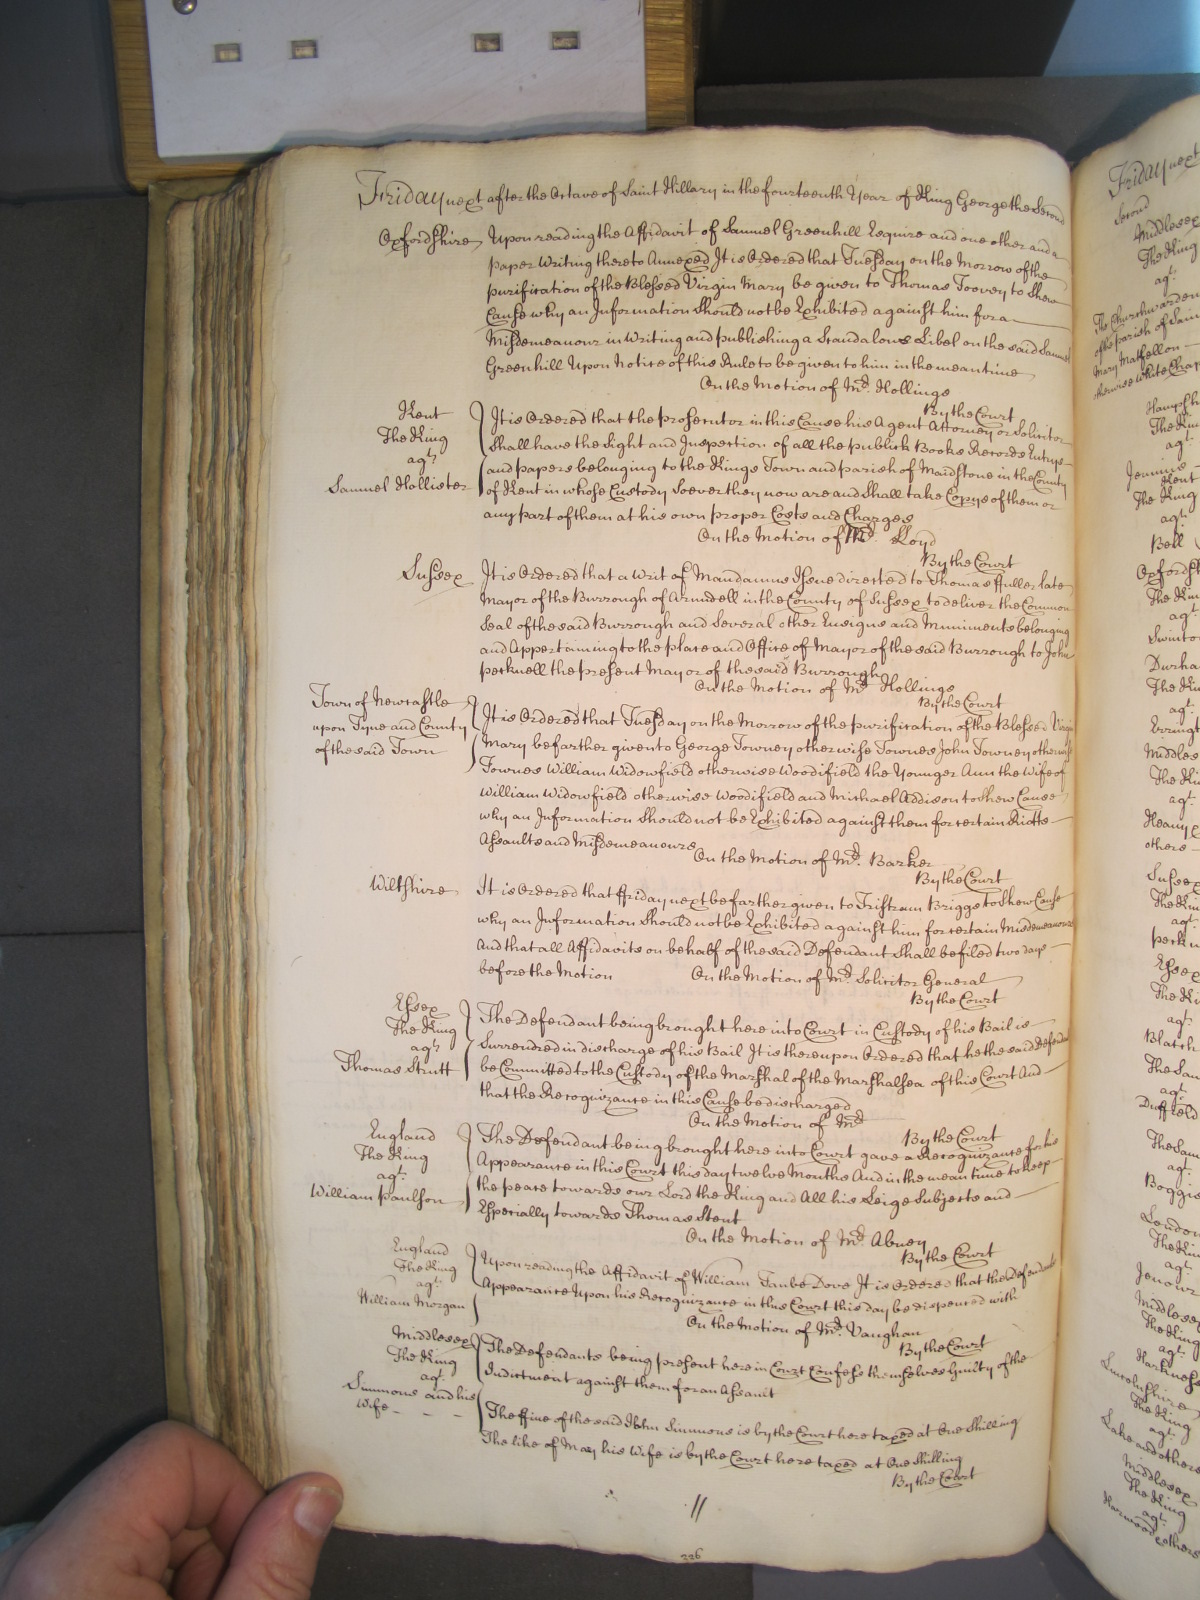 Friday next after the Octave of Saint Hillary in the fourteenth Year of King George the Second
Oxfordshire Upon reading the Affidavit of Samuel Greenhill Esquire and one other and a
paper Writing thereto Annexed It is Ordered that Tuesday on the Morrow of the
purification of the Blessed Virgin Mary be given to Thomas Toovey to Shew
Cause why an Information Should not be Exhibited against him for a
Misdemeanour in Writing and publishing a Scandalous Libel on the said Samuel
Greenhill Upon Notice of this Rule to be given to him in the mean time
On the Motion of Mr. Hollings
By the Court
Kent
The King
agt.
Samuel Hollister
It is Ordered that the prosecutor in this Cause his Agent Attorney or Solicitor
Shall have the Sight and Inspection of all the publick Books Records Entrys
and papers belonging to the Kings Town and parish of Maidstone in the County
of Kent in whose Custody Soever they now are and Shall take Copys of them or
any part of them at his own proper Costs and Charges
On the Motion of Mr. Lloyd
By the Court
Sussex It is Ordered that a Writ of Mandamus Issue directed to Thomas ffuller late
Mayor of the Burrough of Arundell in the County of Sussex to deliver the Common
Seal of the said Burrough and Several other Ensigns and Muniments belonging
and Appertaining to the place and Office of Mayor of the said Burrough to John
pecknell the present Mayor of the said Burrough
On the Motion of Mr. Hollings
By the Court
Town of Newcastle
upon Tyne and County
of the said Town
It is Ordered that Tuesday on the Morrow of the purification of the Blessed Virgin
Mary be farther given to George Towney otherwise Townes John Towney otherwise
Townes William Widowfield otherwise Woodifield the Younger Ann the Wife of
William Widowfield otherwise Woodifield and Michael Addison to Shew Cause
why an Information Should not be Exhibited against them for certain Riotts
Assaults and Misdemeanours
On the Motion of Mr. Barker
By the Court
Wiltshire It is Ordered that ffriday next be farther given to Tristram Briggs to Shew Cause
why an Information Should not be Exhibited against him for certain Misdemeanours
And that all Affidavits on behalf of the said Defendant Shall be filed two days
before the Motion On the Motion of Mr. Solicitor General
By the Court
Essex
The King
agt.
Thomas Strutt
The Defendant being brought here into Court in Custody of his Bail is
Surrendred in discharge of his Bail It is thereupon Ordered that he the said Defendant
be Committed to the Custody of the Marshal of the Marshalsea of this Court And
that the Recognizance in this Cause be discharged
On the Motion of Mr.
By the Court
England
The King
agt.
William Paulson
The Defendant being brought here into Court gave a Recognizance for his
Appearance in this Court this day twelve Months And in the mean time to keep
the peace towards our Lord the King and All his Leige Subjects and
Especially towards Thomas Stent
On the Motion of Mr. Abney
By the Court
England
The King
agt.
William Morgan
Upon reading the Affidavit of William Dove It is Ordered that the Defendants
Appearance Upon his Recognizance in this Court this day be dispenced with
On the Motion of Mr. Vaughan
By the Court
Middlesex
The King
agt.
Simmons and his
Wife
The Defendants being present here in Court Confess themselves Guilty of the
Indictment against them for an Assault
The ffine of the said John Simmons is by the Court here taxed at One Shilling
The like of Mary his Wife is by the Court here taxed at One Shilling
By the Court
226
Friday next
Second
Middlesex
The King
agt.
The Churchwardens
of the parish of Saint
Mary Matfellon
otherwise White Chap
Hampsh
The King
agt.
Jennins
Kent
The King
agt.
Bell
Oxfordsh
The King
agt.
Durha
The King
agt.
Erringt
Middles
The Ki
agt.
others
Sussex
The Kin
agt.
peckn
Essex
The Ki
agt.
Blatch
The Sam
agt.
Duffield
The Sam
agt.
Boggis
London
The Kin
agt.
Middlesex
The King
agt.
Harkness
Lincolnshire
The King
agt.
Lake and others
Middlesex
The King
agt.
Harwood & others